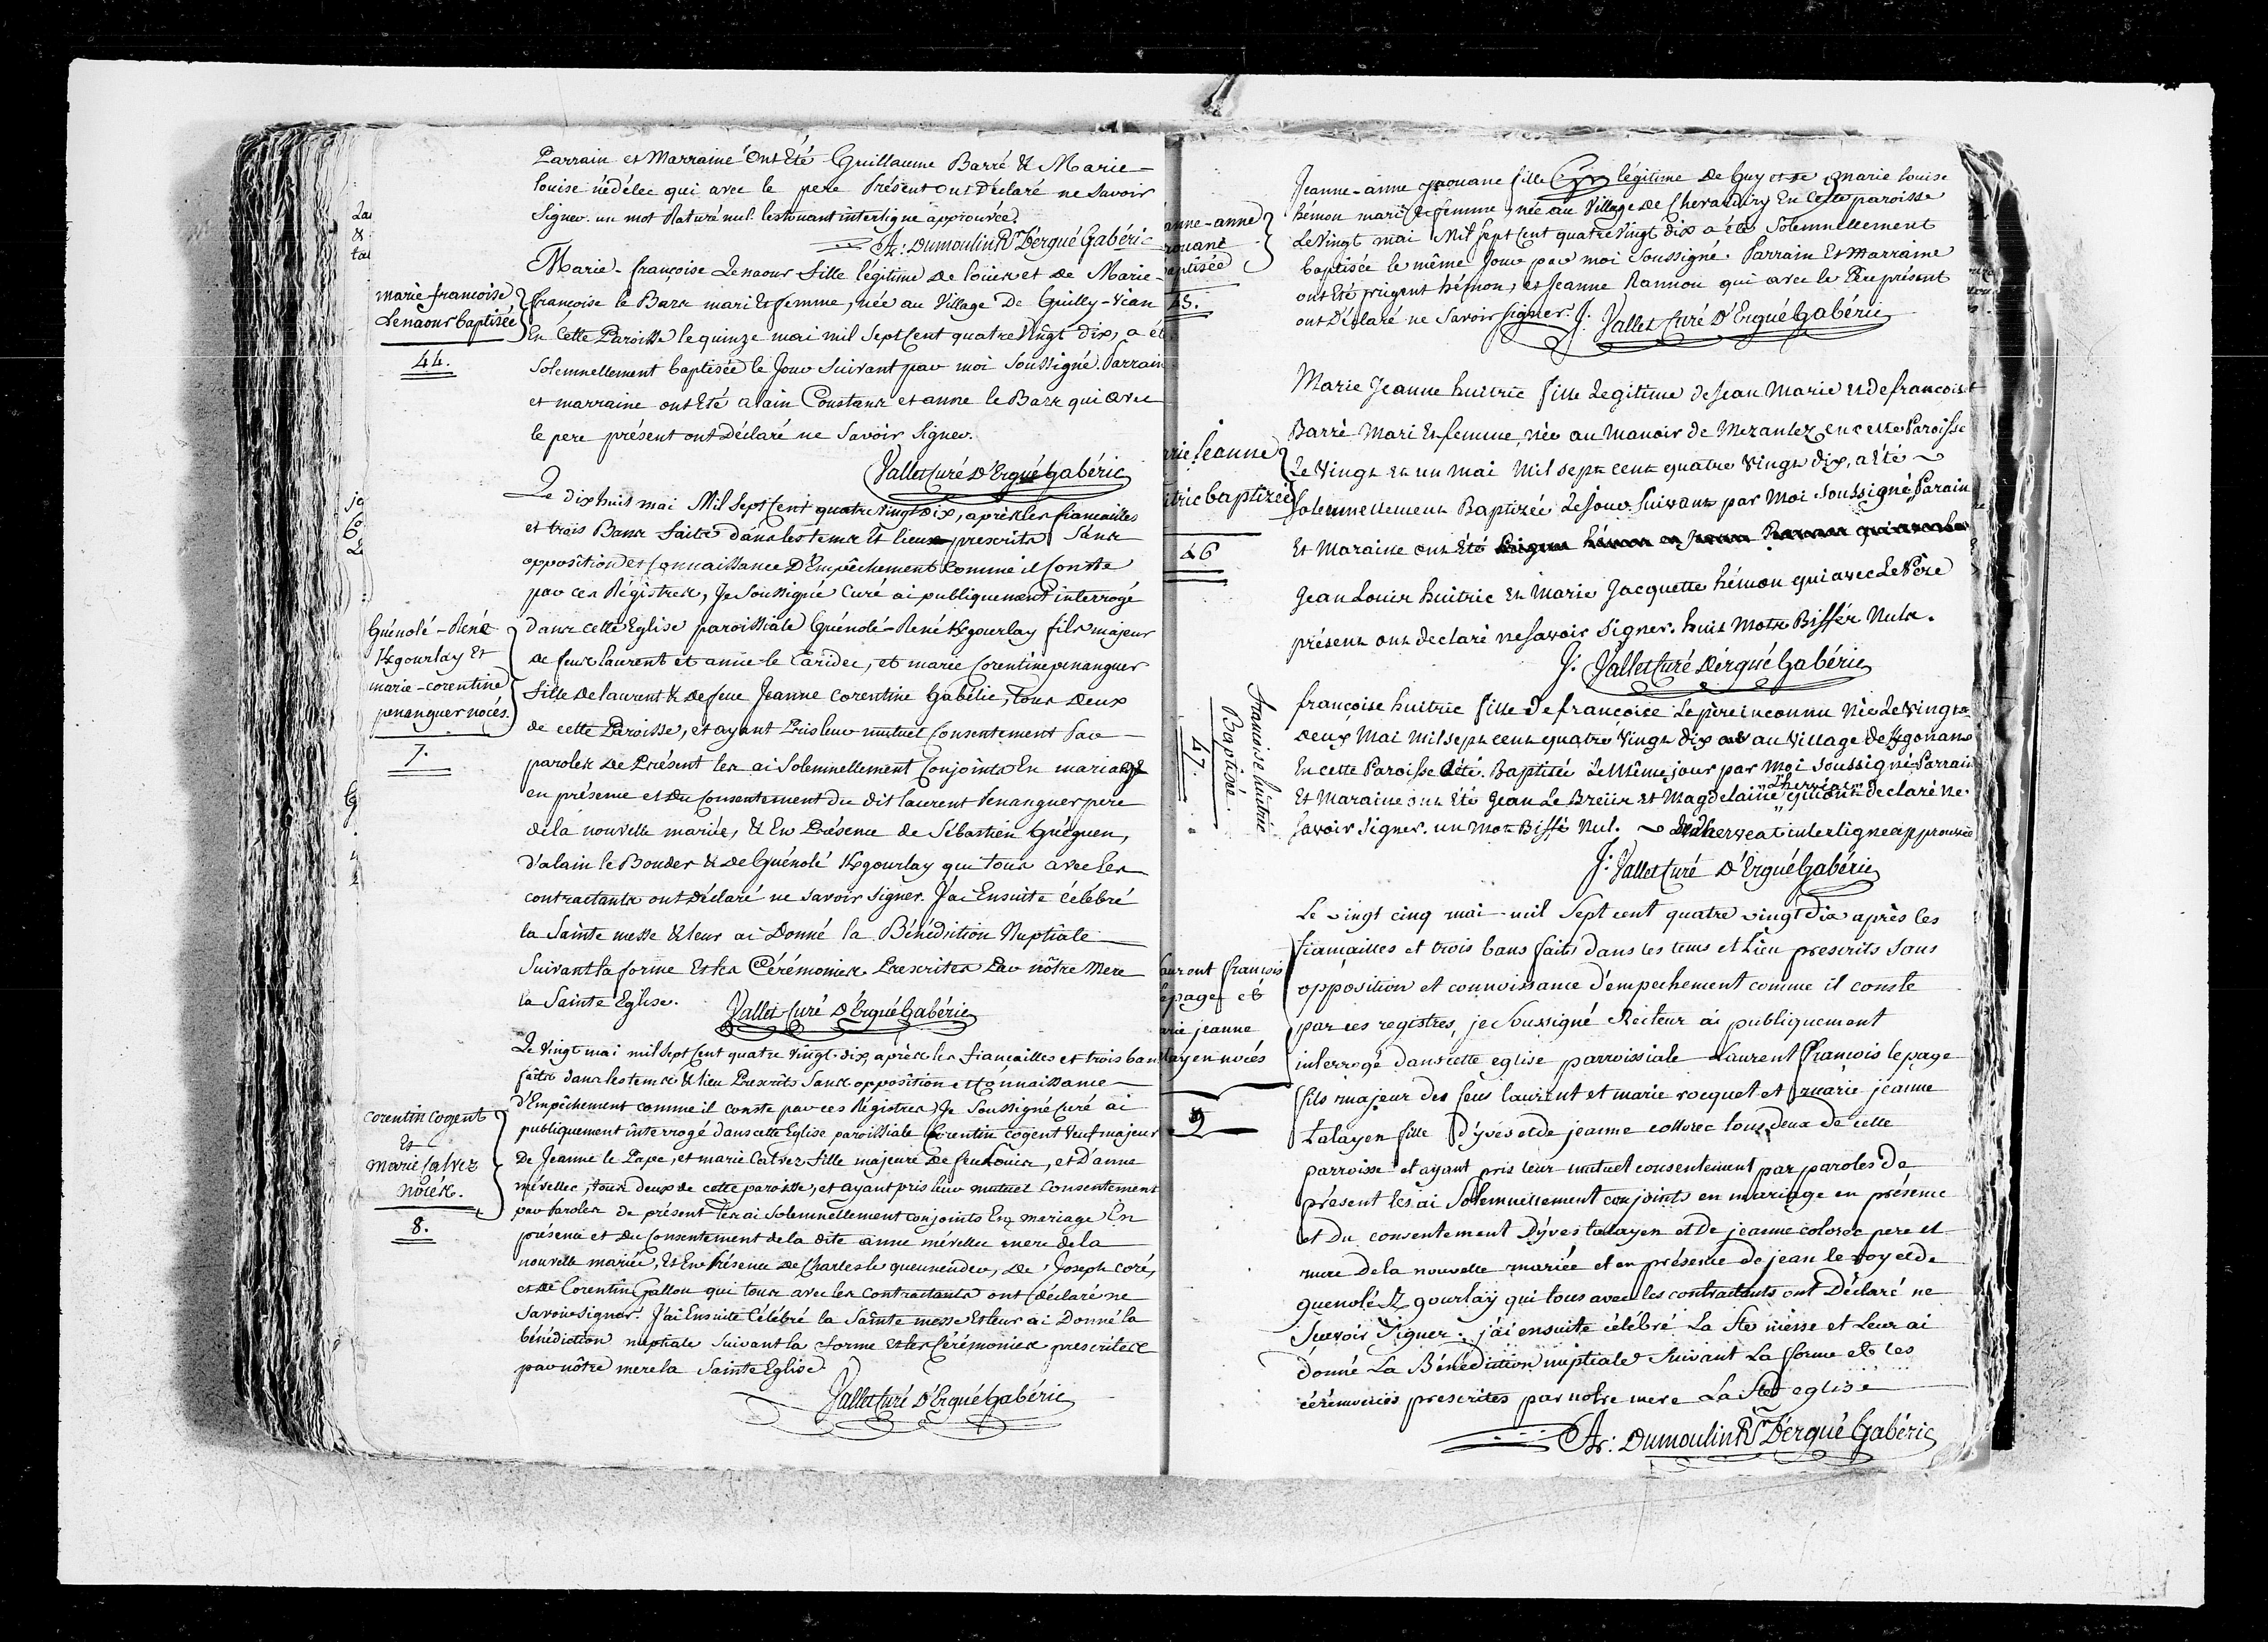 Parrain et Marraine ont Eté Guillaume Barré & Marie-
louise nédélec qui avec le pere Présent ont Déclaré ne Savoir
Signer. un mot Raturé nul. lestouant interligne approuvée.
At: Dumoulin Rr D'ergué Gabéric
marie francoise
Lenaour baptisée
44.
Marie-françoise Lenaour fille légitime de louis et de Marie-
françoise le Bars mari Et femme, née au Village De Guilly-vian
En Cette Paroisse le quinze mai mil Sept Cent quatre Vingt dix, a été
Solemnellement baptisée le Jour Suivant par moi Soussigné. Parrain
et marraine ont Eté alain Constans et anne le Bars qui avec
le pere présent ont Déclaré ne Savoir Signer.
Vallet Curé D'Ergué Gabéric
Guénolé-René
Kgourlay Et
marie-corentine
penanguer nocés.
7.
Le dix huit mai Mil Sept Cent quatre Vingt Dix, après les fiancailles
et trois Bans faits dans les tems Et lieux prescrits Sans
opposition et Connaissance D'Empêchement Comme il Conste
par ces Régistres, Je Soussigné Curé ai publiquement interrogé
dans cette Eglise paroissiale Guénolé-René Kgourlay fils majeur
de feux laurent et anne le Caridec, et marie Corentine penanguer
fille de laurent & de feue Jeanne Corentine Gabélic, tous deux
de cette Paroisse, et ayant Pris leur mutuel Consentement Par
paroles De Présent les ai Solemnellement Conjoints En mariage
en présence et du Consentement du dit laurent Penanguer pere
de la nouvelle mariée, & En Présence de Sébastien Guéguen,
d'alain le Bouder & de Guénolé Kgourlay qui tous avec les
contractants ont déclaré ne savoir Signer. J'ai Ensuite célébré
la Sainte messe & leur ai Donné la Bénédiction Nuptiale
Suivant la forme Et les Cérémonies Prescrites Par nôtre Mere
la Sainte Eglise.
Vallet Curé D'Ergué Gabéric
corentin Cogent
Et
marie Calvez
nocés.
8.
Le Vingt mai mil Sept Cent quatre Vingt-dix, après les fiancailles et trois bans
faits dans les tems & lieu Prescrits Sans opposition et Connaissance
d'Empêchement comme il conste par ces Régistres, Je Soussigné Curé ai
publiquement interrogé dans cette Eglise paroissiale Corentin Cogent Veuf majeur
De Jeanne le Pape, et marie Calvez fille majeure De feu Louis, et D'anne
mévellec, tous deux de cette paroisse, et ayant pris leur mutuel Consentement
par Paroles de présent les ai Solemnellement conjoints En mariage En
présence et du Consentement de la dite anne mévellec mere de la
nouvelle mariée, Et En Présence de Charles le queneudec, de Joseph Coré,
et de Corentin Gallou qui tous avec les Contractants ont déclaré ne
Savoir Signer. J'ai Ensuite Célébré la Sainte messe Et leur ai Donné la
bénédiction nuptiale Suivant la forme Et les Cérémonies prescrites
par nôtre mere la Sainte Eglise.
Vallet Curé D'Ergué Gabéric
anne-anne
baptisée
45.
Jeanne-anne jaouanc fille légitime De Guy et de marie louise
hémon mari & femme, née au Village de Cheraduiry En Cette paroisse
Le Vingt mai Mil Sept Cent quatre Vingt dix a été Solemnellement
baptisée le même Jour par moi Soussigné. Parrain Et Marraine
ont Eté prigent hémon, et Jeanne Rannou qui avec le Pere présent
ont Déclaré ne Savoir Signer. J. Vallet Curé D'Ergué Gabéric
rie Jeanne
itric baptizée
46
Marie Jeanne huitric fille Legitime de Jean Marie et de francoise
Barré Mari Et femme, née au Manoir de Mezanlez en cette Paroisse
Le Vingt et un Mai Mil sept cent quatre Vingt dix, a été
Solemnellement Baptizée Le Jour Suivant par Moi Soussigné Parain
Et Maraine ont Eté
Jean Louis huitric Et Marie Jacquette hémon qui avec Le Pére
présent ont declaré ne Savoir Signer. huit Mots Biffés Nuls.
J. Vallet Curé Dérgué Gabéric
francoise huitric
Baptisée.
47.
françoise huitric fille de francoise Le pere inconnu Née Le Vingt
Deux Mai Mil sept cent quatre Vingt dix au Village de Kgonan
En cette Paroisse a été Baptisée Le Même jour par Moi Soussigné Parrain
Et Maraine ont Eté Jean Le Breüs Et Magdelaine qui ont declaré ne
Savoir Signer. un Mot Biffé Nul. interligne approuvée
J. Vallet Curé D'Ergué Gabéric
aurent francois
epage et
arie jeanne
layen nocés
9
Le vingt cinq mai mil Sept cent quatre vingt Dix après les
fiancailles et trois bans faits dans les tems et Lieu prescrits Sans
opposition et connoissance d'empechement comme il conste
par ces registres, je Soussigné Recteur ai publiquement
interrogé dans cette eglise parroissiale Laurent François lepage
fils majeur des feus laurent et marie rocquet et marie jeanne
Talayen fille D'yves et de jeanne collorec tous deux de cette
parroisse et ayant pris leur mutuel consentement par paroles de
présent les ai Solemnellement conjoints en mariage en présence
et Du consentement D'yves talayen et De jeanne colorec pere et
mere De la nouvelle mariée et en présence de jean le roy et de
guenolé Kgourlaÿ qui tous avec les contractants ont Déclaré ne
Scavoir Signer. j'ai ensuite célébré La Ste messe et Leur ai
donné La Bénédiction nuptiale Suivant La forme et les
cérémonies prescrites par notre mere La Ste eglise
At: Dumoulin Rr D'ergué Gabéric